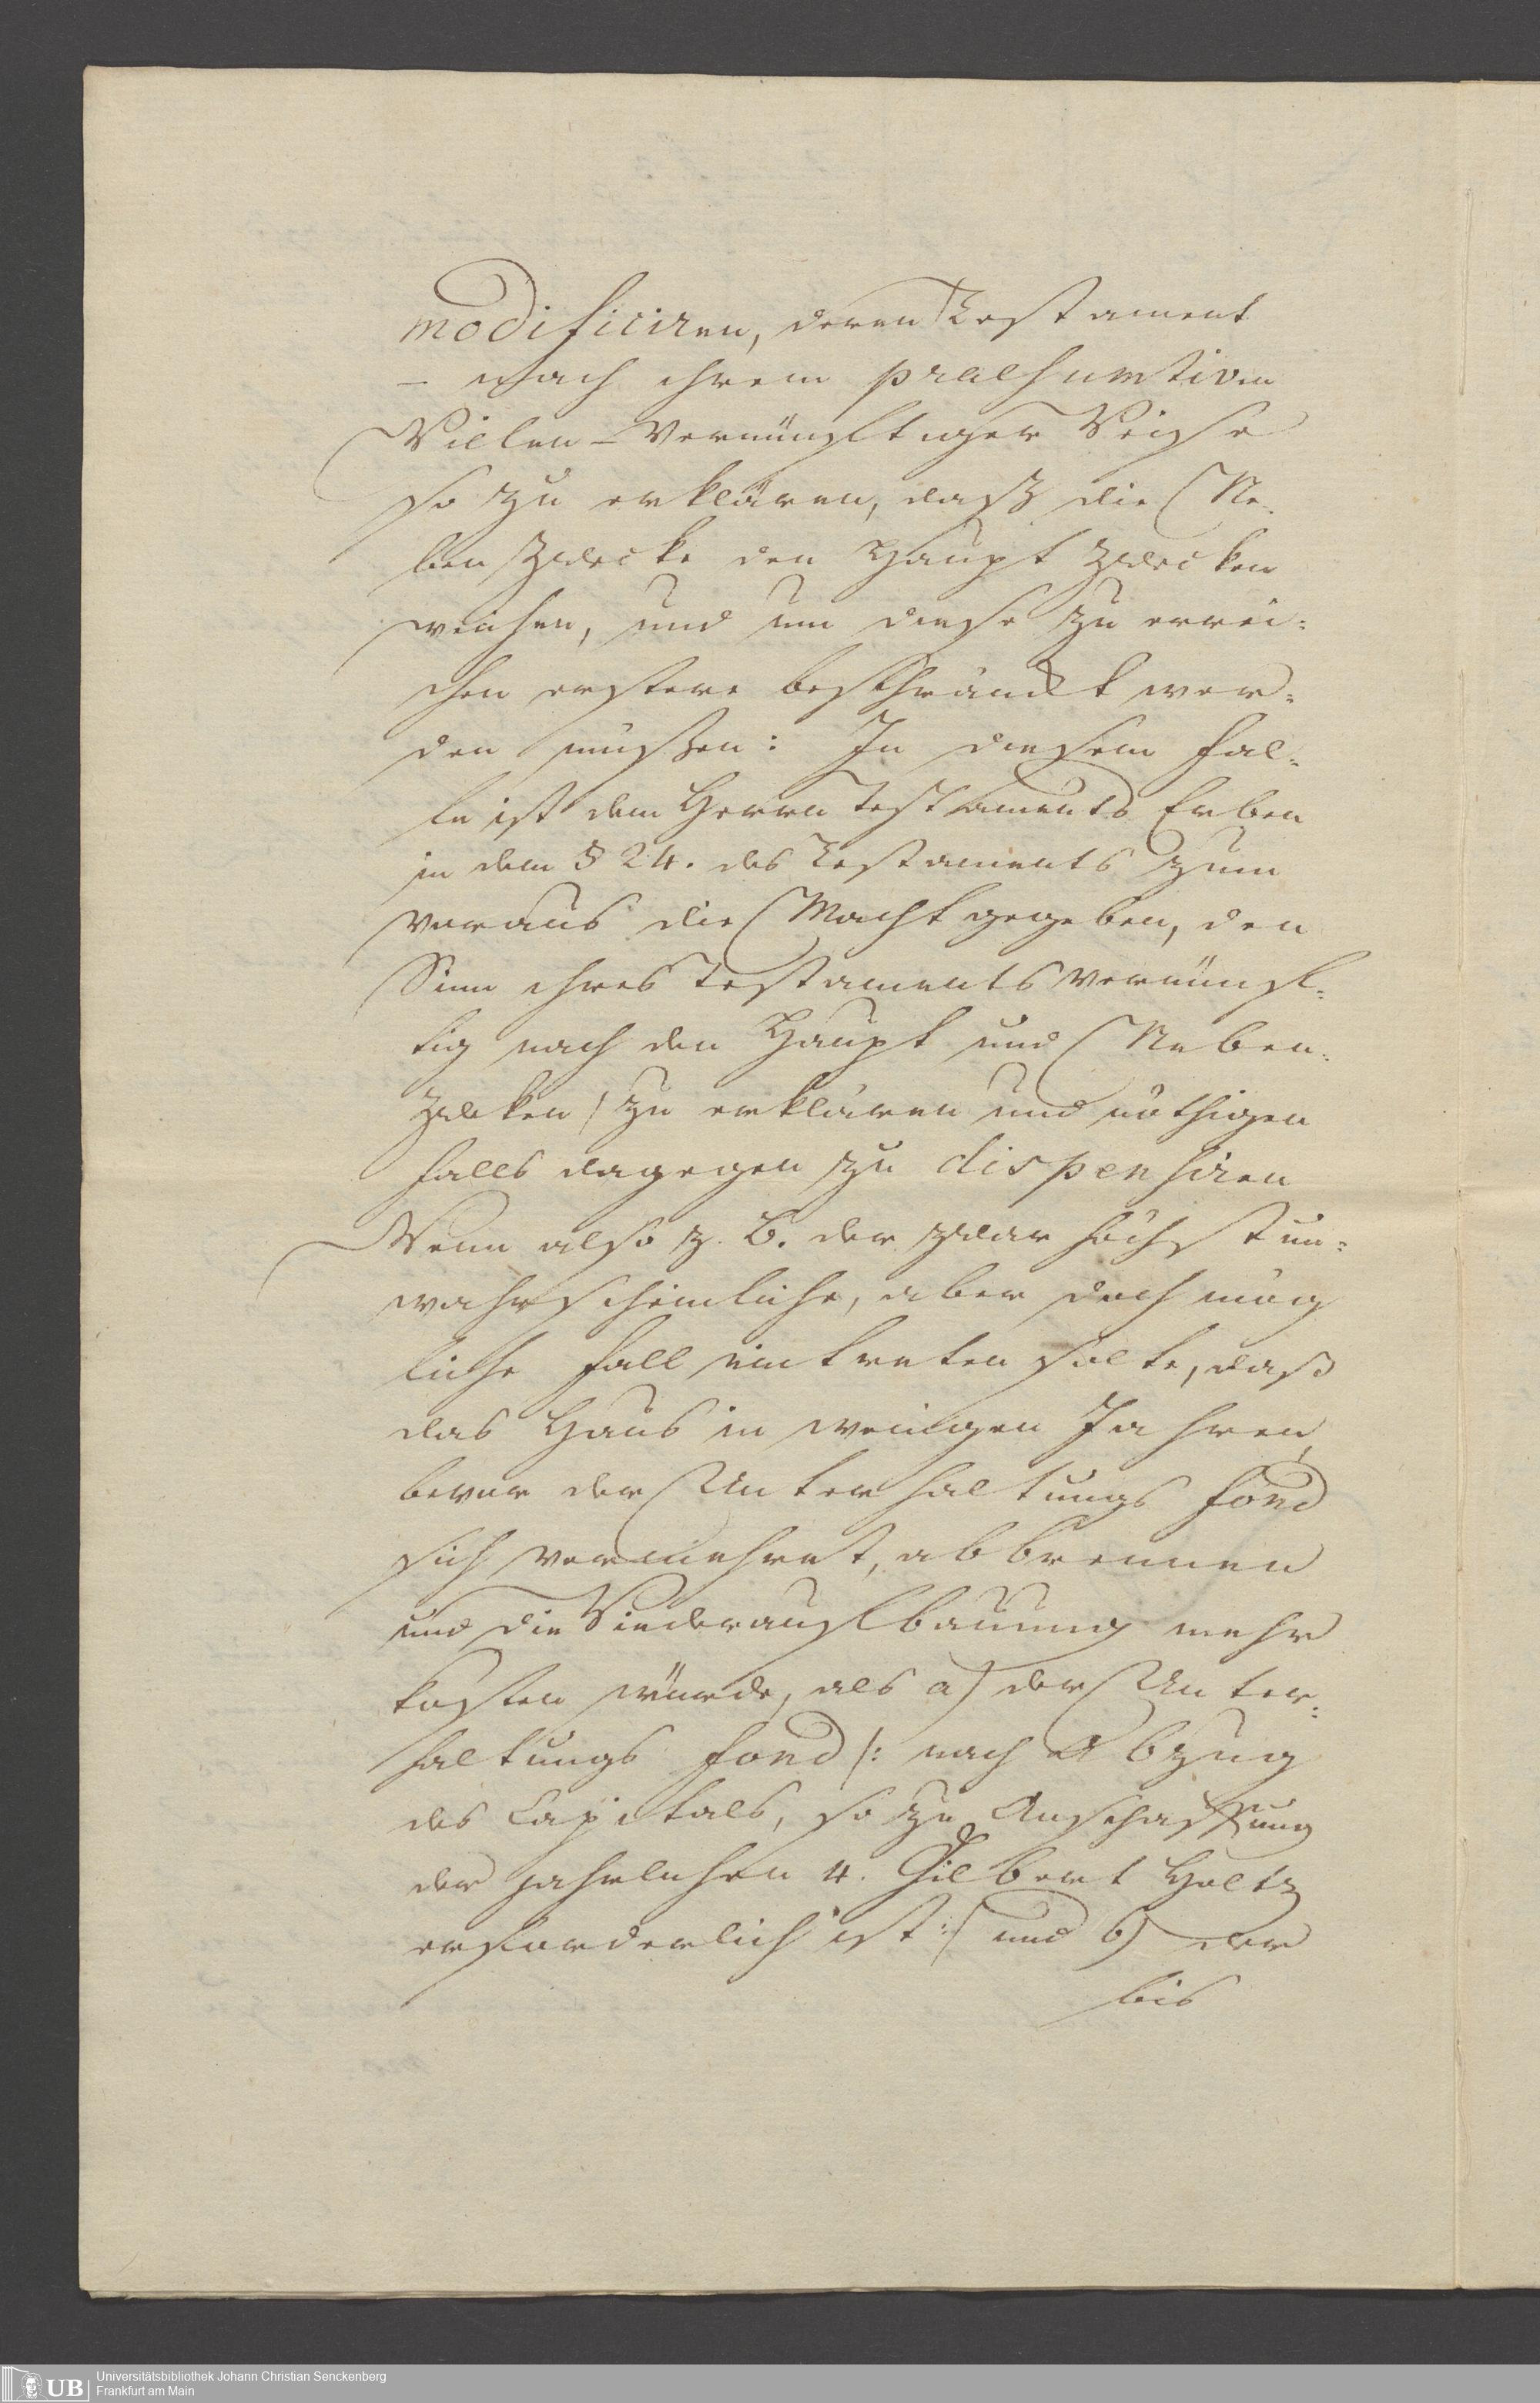 modificiren, deren Testament
– nach ihrem praesumtiven
Willen – vernünftiger Weise
so zu erklären, daß die Ne-
ben Zwecke den Haupt Zwecken
weichen, und um diese zu errei-
chen erstere beschränckt wer-
den müßen: In diesem Fal-
le ist dem Herrn Testaments Erben
in dem § 24. des Testaments zum
voraus die Macht gegeben, den
Sinn ihres Testaments vernünf-
tig nach den Haupt und Neben-
Zweken zu erklären und nöthigen
falls dagegen zu dispensiren
Wenn also z. B. der zwar höchst un-
wahrscheinliche, aber doch mög
liche Fall eintreten solte, daß
das Haus in wenigen Jahren,
bevor der Unterhaltungs Fond
sich vermehret, abbrennen
und die Wiederaufbauung mehr
kosten würde, als a) der Unter-
haltungs Fond /: nach Abzug
des Capitals, so zu Anschaffung
der jahrlichen 4. Gilbert Holtz
erforderlich ist :/ und b) der
bis
Universitätsbibliothek Johann Christian Senckenberg
Frankfurt am Main
UB